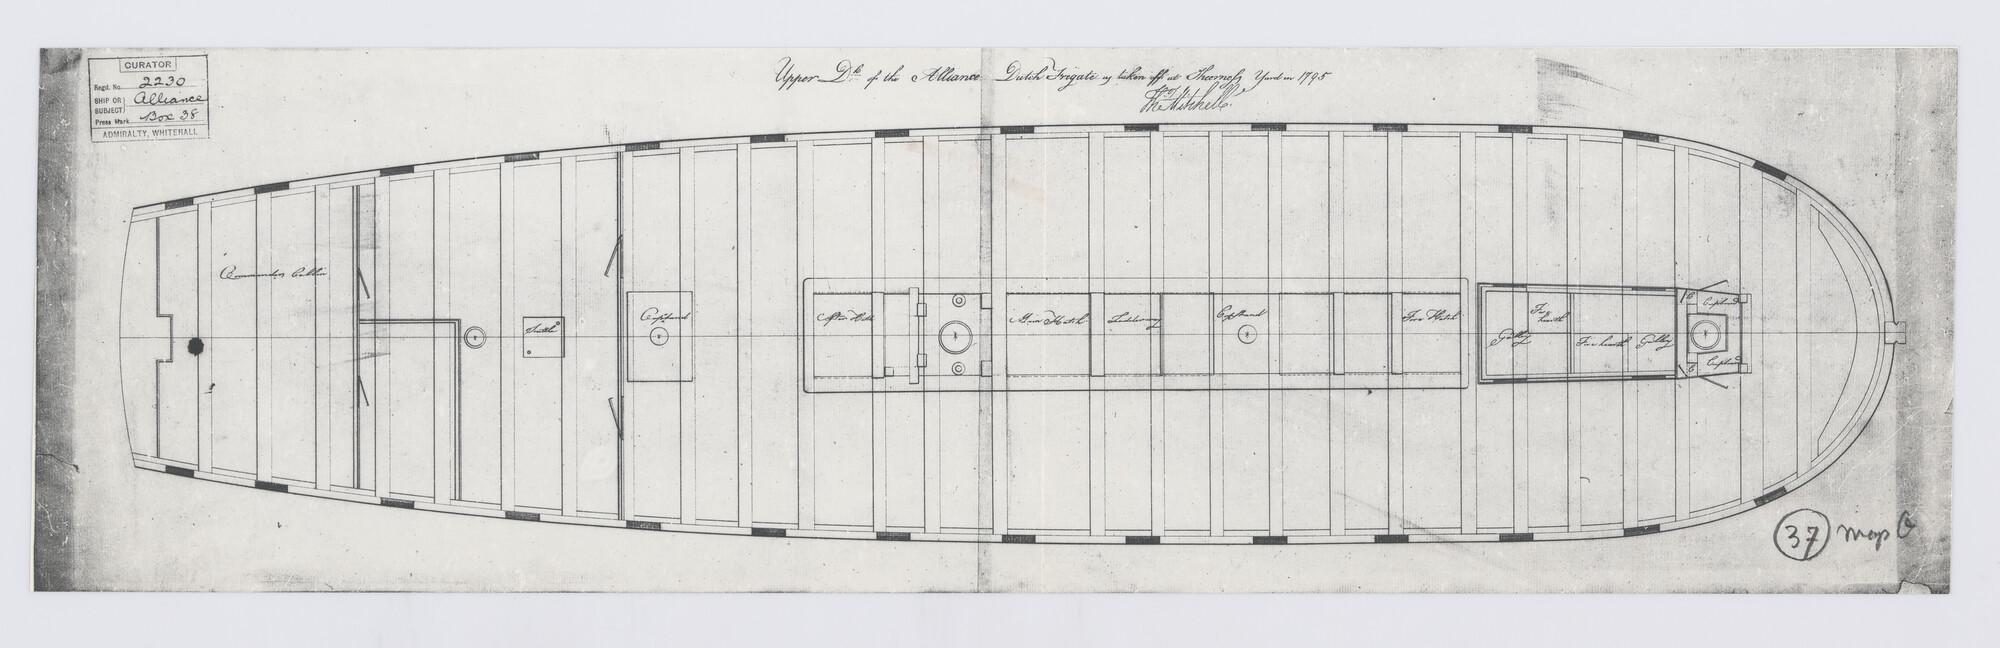 CURATOR
Regd. No. 2230
SHIP OR SUBJECT Alliance
Press Mark Box 38
ADMIRALTY, WHITEHALL
Upper Dk of the Alliance Dutch Frigate as taken off at Sheerness Yard in 1795
Commanders Cabbin
Scuttle
Capstand
After Hatch
Main Hatch
Ladderway
Capstand
Fore Hatch
Galley
Fire hearth
Fire hearth Galley
37 map